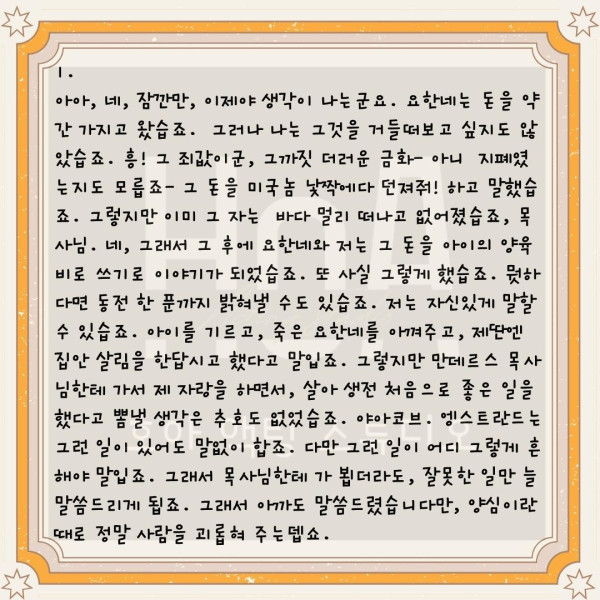 1.
아아, 네, 잠깐만, 이제야 생각이 나는군요. 요한네는 돈을 약
간 가지고 왔습죠. 그러나 나는 그것을 거들떠보고 싶지도 않
았습죠. 흥! 그 죄값이군, 그까짓 더러운 금화- 아니 지폐였
는지도 모릅죠- 그 돈을 미국놈 낯짝에다 던져줘! 하고 말했습
죠. 그렇지만 이미 그 자는 바다 멀리 떠나고 없어졌습죠, 목
사님. 네, 그래서 그 후에 요한네와 저는 그 돈을 아이의 양육
비로 쓰기로 이야기가 되었습죠. 또 사실 그렇게 했습죠. 뭣하
다면 동전 한 푼까지 밝혀낼 수도 있습죠. 저는 자신있게 말할
수 있습죠. 아이를 기르고, 죽은 요한네를 아껴주고, 제딴엔
집안 살림을 한답시고 했다고 말입죠. 그렇지만 만데르스 목사
님한테 가서 제 자랑을 하면서, 살아 생전 처음으로 좋은 일을
했다고 뽐낼 생각은 추호도 없었습죠. 야아코브. 엥스트란드는
그런 일이 있어도 말없이 합죠. 다만 그런 일이 어디 그렇게 흔
해야 말입죠. 그래서 목사님한테 가 뵙더라도, 잘못한 일만 늘
말씀드리게 됩죠. 그래서 아까도 말씀드렸습니다만, 양심이란
때로 정말 사람을 괴롭혀 주는뎁쇼.
HoA
호아 액팅 스튜디오